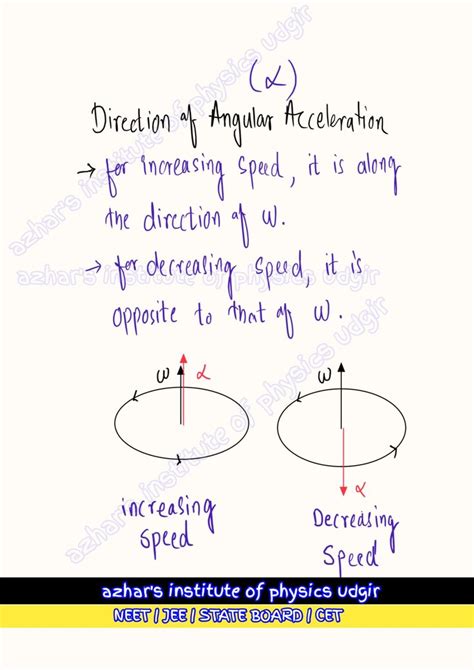 (α)
Direction of Angular Acceleration
→ for increasing speed, it is along
the direction of ω.
→ for decreasing speed, it is
opposite to that of ω.
ω α
ω
α
increasing
speed
Decreasing
speed
azhar's institute of physics udgir
azhar's institute of physics udgir
azhar's institute of physics udgir
azhar's institute of physics udgir
NEET / JEE / STATE BOARD / CET